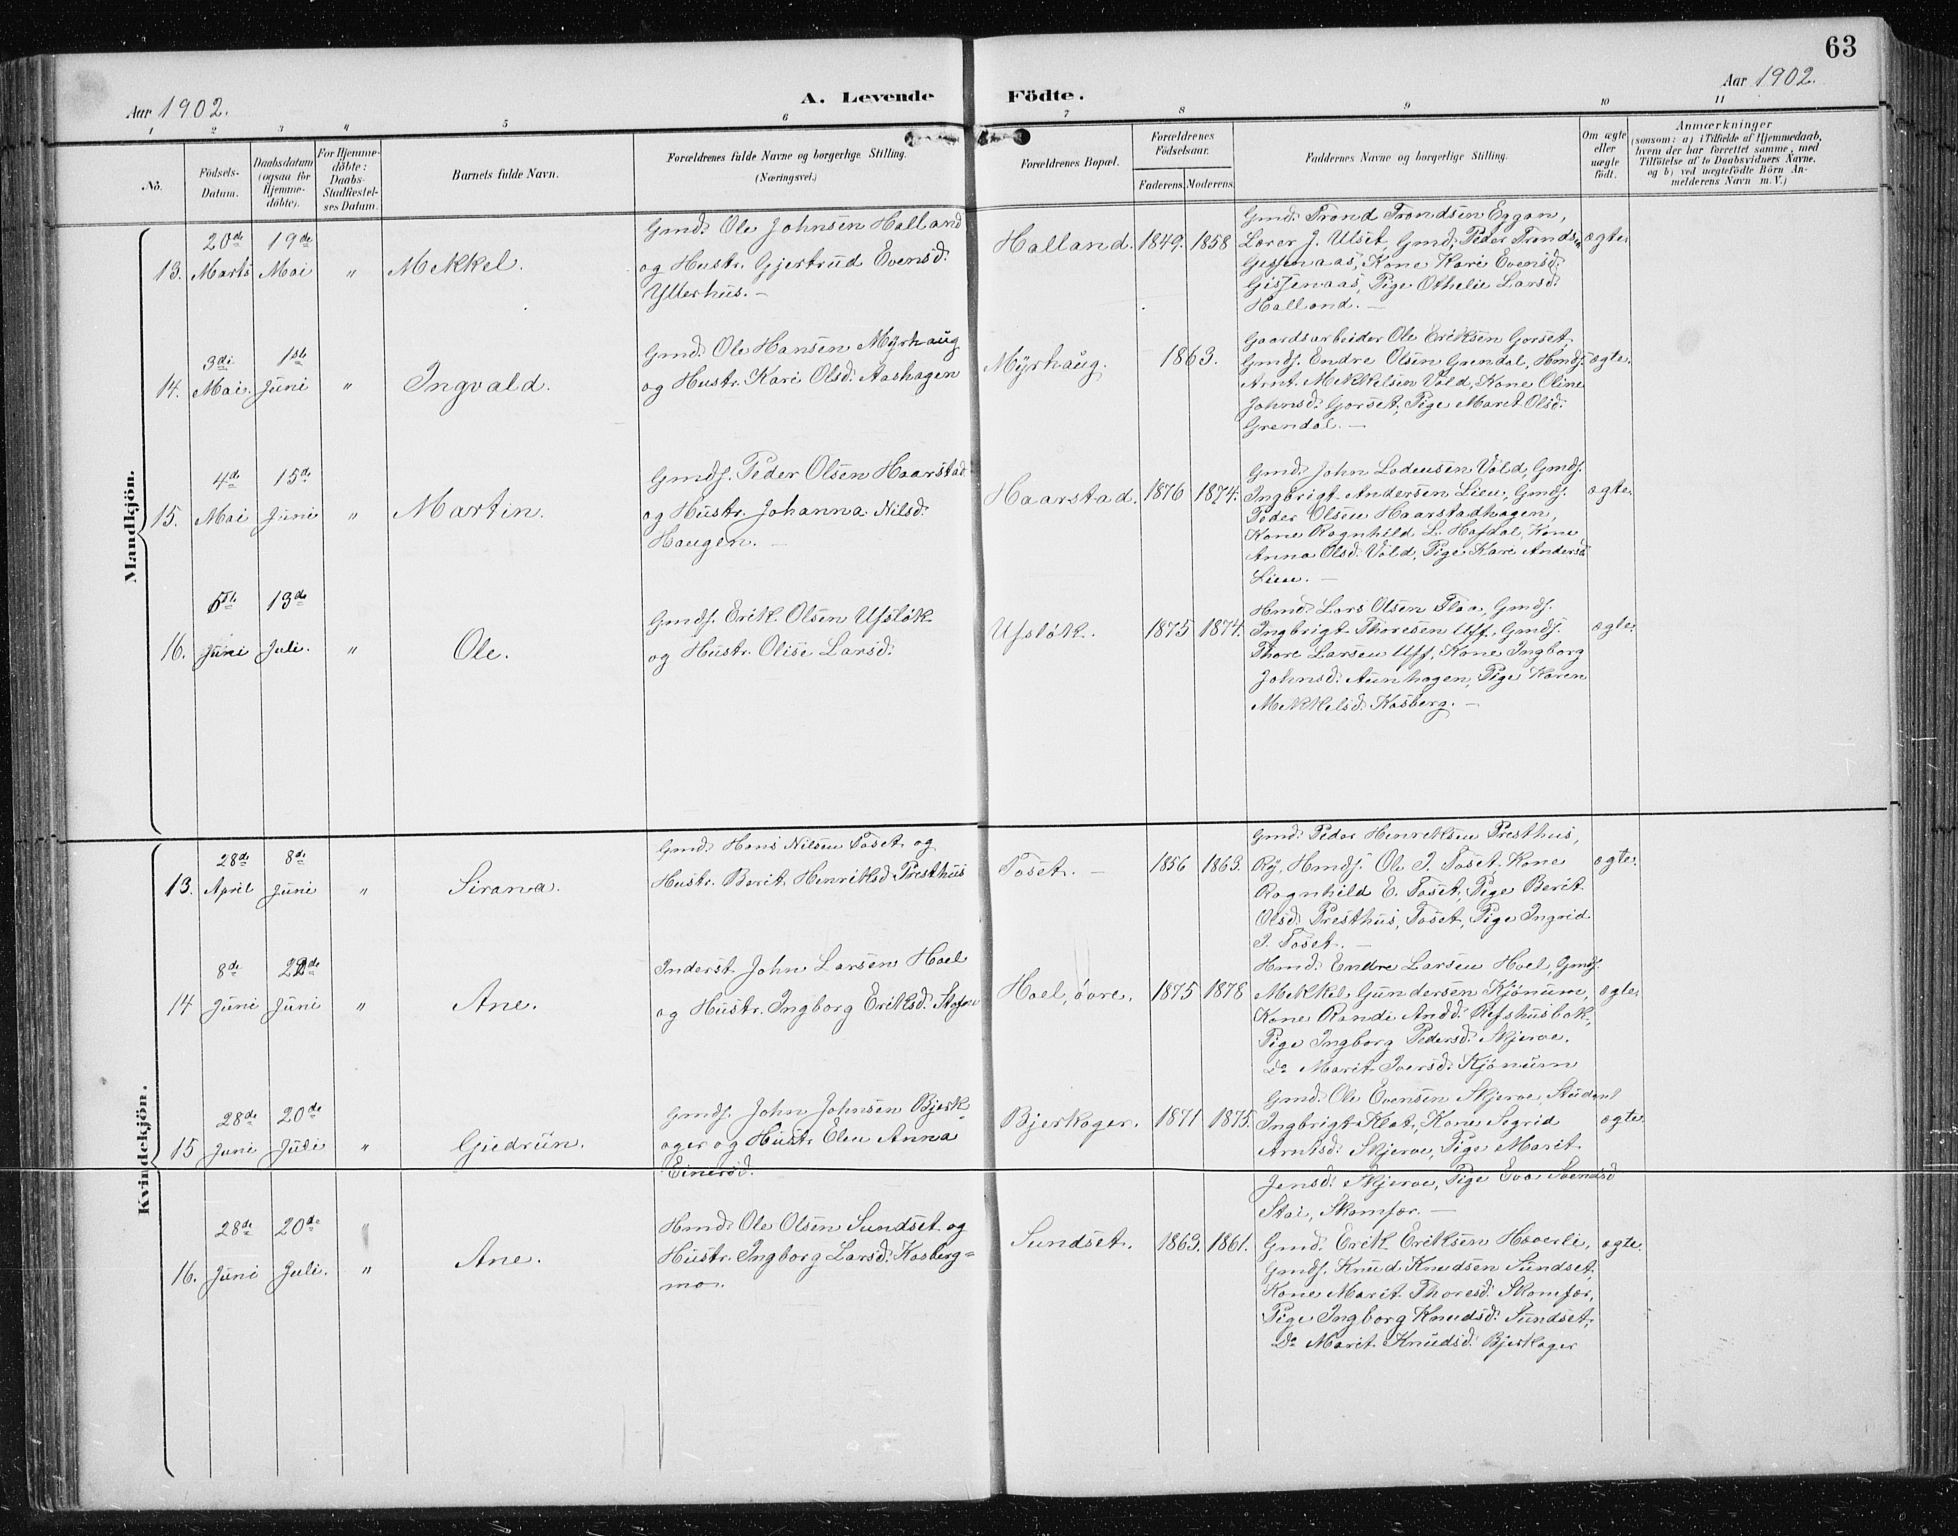 63
Aar 1902.
A. Levende Födte.
Aar 1902.
1 2 3 4 5 6 7 8 9 10 11
No.
Födsels-
Datum.
Daabsdatum
(ogsaa for
Hjemme-
döbte).
For Hjemme-
döbte:
Daabs-
Stadfæstel-
ses Datum.
Barnets fulde Navn.
Forældrenes fulde Navne og borgerlige Stilling.
(Næringsvei.)
Forældrenes Bopæl.
Forældrenes
Födselsaar.
Faderens. Moderens.
Faddernes Navne og borgerlige Stilling.
Om ægte
eller
uægte
födt.
Anmærkninger
(saasom: a) i Tilfælde af Hjemmedaab,
hvem der har forrettet samme, med
Tilföielse af to Daabsvidners Navne,
og b) ved uægtefödte Börn An-
melderens Navn m. V.)
Mandkjön.
20de 19de
13. Marts Mai " Mekkel.
Gmd. Ole Johnsen Halland
og Hustr. Gjertrud Evensd.
Ytterhus. —
Halland. 1849. 1858
Gmd. Trond Trondsen Eggan,
Lærer J. Ulset, Gmd. Peder Tronds.
Gisjenaas, Kone Kari Evensd.
Gisjenaas, Pige Othelie Larsd.
Halland. —
ægte
3die 1ste
14. Mai. Juni " Ingvald.
Gmd. Ole Hansen Myrhaug
og Hustr. Kari Olsd. Aashagen
Myrhaug. 1863.
Gaardsarbeider Ole Eriksen Gorset,
Gmdf. Endre Olsen Grendal, Hmdf.
Arnt Mekkelsen Vold, Kone Oline
Johnsd. Gorset, Pige Marit Olsd.
Grendal. —
ægte.
4de 15de
15. Mai Juni " Martin.
Gmdf. Peder Olsen Haarstad
og Hustr. Johanna Nilsd.
Haugen. —
Haarstad. 1876 1874.
Gmd. John Lodensen Vold, Gmdf.
Ingbrigt Andersen Lien, Gmdf.
Peder Olsen Haarstadhagen,
Kone Ragnhild L. Hafdal, Kone
Anna Olsd. Vold, Pige Kari Andersd
Lien. —
ægte.
5te 13de
16. Juni Juli. " Ole.
Gmdf. Erik Olsen Ufsløk
og Hustr. Olise Larsd.
Ufsløk. 1875 1874.
Hmd. Lars Olsen Flaa, Gmdf.
Ingbrigt Thoresen Uff, Gmdf.
Thore Larsen Uff, Kone Ingborg
Johnsd. Aunhagen, Pige Karen
Mekkelsd. Kosberg. —
ægte.
Kvindekjön.
28de 8de
13. April Juni " Sirana.
Gmd. Hans Nilsen Toset og
Hustr. Berit Henriksd. Presthus
Toset. — 1856 1863.
Gmd. Peder Henriksen Presthus,
Ry, Hmdf. Ole I. Toset, Kone
Ragnhild E. Toset, Pige Berit
Olsd. Presthus, Toset, Pige Ingrid
I. Toset. —
ægte.
8de 22de
14 Juni Juni " Ane.
Inderst John Larsen Hoel
og Hustr. Ingborg Eriksd.
Hoel, øvre. 1875 1878
Hmd. Endre Larsen Hoel, Gmdf.
Mekkel Gundersen Kjønum,
Kone Randi Andd. Refshusbak,
Pige Ingborg Pedersd. Skjerve.
Do Marit Iversd. Kjønum
ægte
28de 20de
15 Juni Juli " Gudrun.
Gmdf. John Johnsen Bjerk-
ager og Hustr. Elen Anna
Einersd.
Bjerkager. 1871 1875.
Gmd. Ole Evensen Skjerve, Student
Ingbrigt Klat, Kone Sigrid
Arntsd. Skjerve, Pige Marit
Jensd. Skjerve, Pige Eva Svendsd
Stai, Skamfær. —
ægte.
28de 20de "
16. Juni Juli. " Ane.
Hmd. Ole Olsen Sundset og
Hustr. Ingborg Larsd. Kosberg=
mo.
Sundset. 1863. 1861.
Gmd. Erik Eriksen Haverli,
Gmdf. Knud Knudsen Sundset,
Kone Marit Thoresd. Skamfær,
Pige Ingborg Knudsd. Sundset,
Do Marit Knudsd. Bjerkager
ægte.